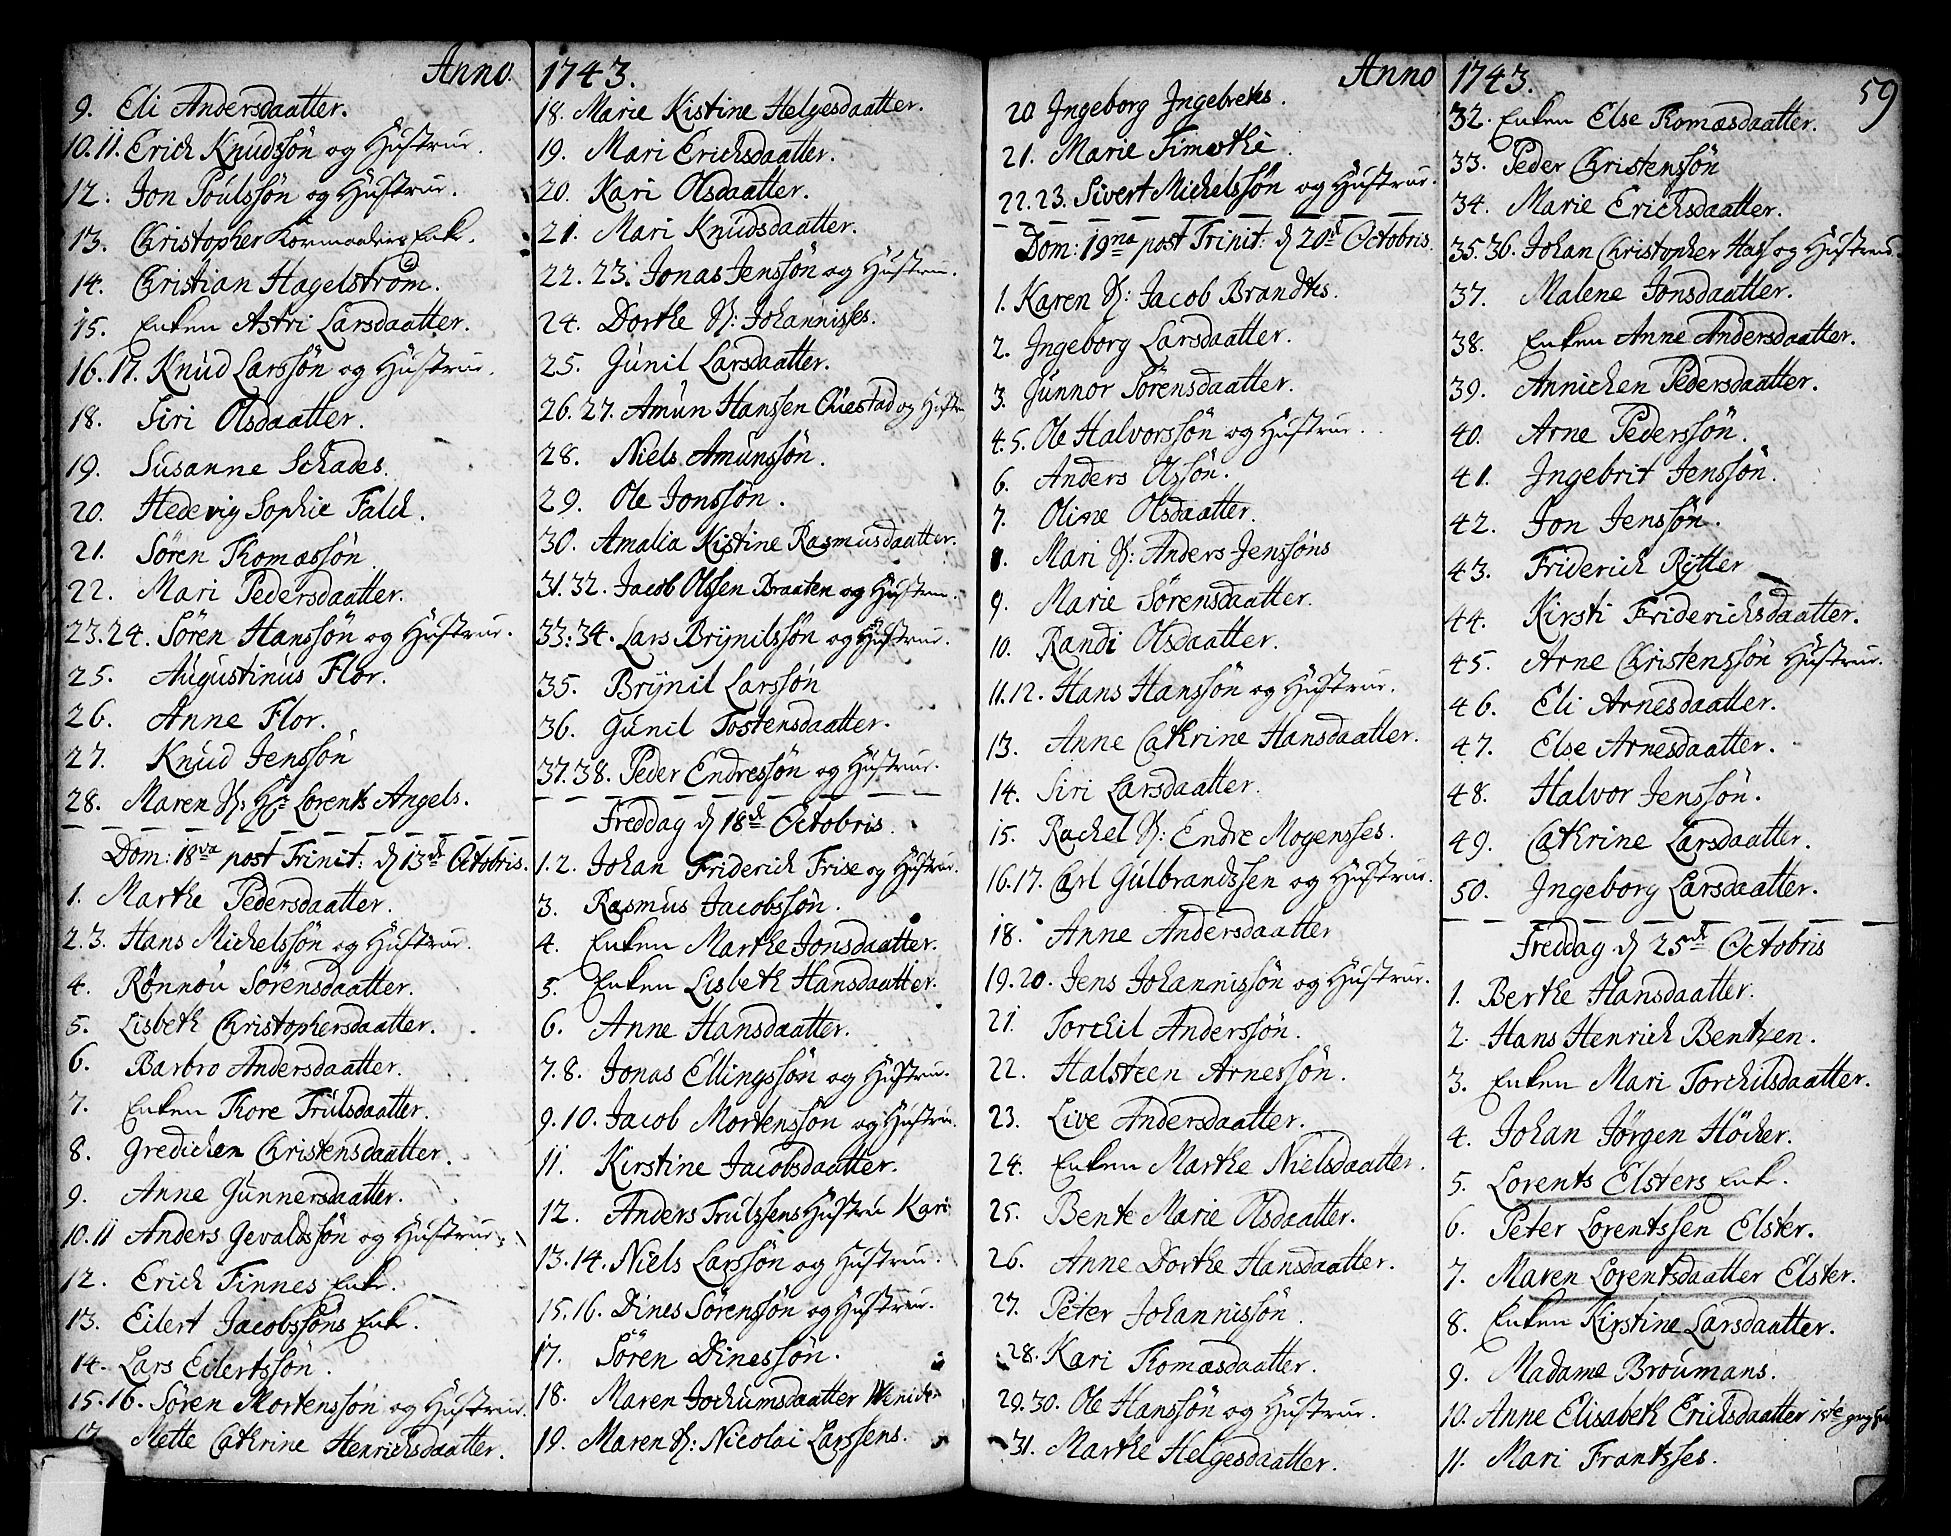 Anno 1743.
9. Eli Andersdaatter.
10.11. Erich Knudssön og Hustrue.
12. Jon Poulssön og Hustrue.
13. Christopher Kormaaders Enke.
14. Christian Hagelström.
15. Enken Astri Larsdaatter.
16.17. Knud Larssön og Hustrue.
18. Siri Olsdaatter.
19. Susanne Schades.
20. Hedevig Sophie Falck.
21. Sören Thomassön
22. Mari Pedersdaatter.
23.24. Sören Hanssön og Hustrue.
25. Augustinus Flor.
26. Anne Flor.
27. Knud Jenssön
28. Maren S: Hr Lorents Angels.
Dom: 18va post Trinit: d 13de Octobris.
1. Marthe Pedersdaatter.
2.3. Hans Michelssön og Hustrue.
4. Rönnou Sörensdaatter.
5. Lisbeth Christophersdaatter.
6. Barbro Andersdaatter.
7. Enken Thore Trulsdaatter.
8. Gredichen Christensdaatter.
9. Anne Gunnersdaatter.
10.11 Anders Gevaldssön og Hustrue.
12. Erich Finnes Enke.
13. Eilert Jacobssöns Enke.
14. Lars Eilertssön.
15.16. Sören Mortenssön og Hustrue.
17. Mette Cathrine Henrichsdaatter.
18. Marie Kistine Helgesdaatter.
19. Mari Erichsdaatter.
20. Kari Olsdaatter.
21. Mari Knudsdaatter.
22.23. Jonas Jenssön og Hustrue.
24. Dorthe S: Johannisses.
25. Gunil Larsdaatter.
26.27. Amun Hansen Questad og Hustr
28. Niels Amunssön.
29. Ole Jonssön.
30. Amalia Kistine Rasmusdaatter.
31.32. Jacob Olssen Braaten og Hustrue.
33.34. Lars Brynilssön og Hustrue.
35. Brynil Larssön
36. Gunil Tostensdaatter.
37.38. Peder Endressön og Hustrue.
Freddag d 18de Octobris.
1.2. Johan Friderich Frise og Hustrue.
3. Rasmus Jacobssön.
4. Enken Marthe Jonsdaatter.
5. Enken Lisbeth Hansdaatter.
6. Anne Hansdaatter.
7.8. Jonas Ellingssön og Hustrue.
9.10. Jacob Mortenssön og Hustrue.
11. Kirstine Jacobsdaatter.
12. Anders Trulssens Hustrue Kari
13.14. Niels Larssön og Hustrue.
15.16. Dines Sörenssön og Hustrue.
17. Sören Dinessön.
18. Maren Jochumsdaatter
19. Maren S: Nicolai Larssens.
Anno 1743. 59
20. Ingeborg Ingebreths.
21. Marie Timothei
22.23. Sivert Michelssön og Hustrue.
Dom: 19na post Trinit: d 20de Octobris.
1. Karen S: Jacob Brandts.
2. Ingeborg Larsdaatter.
3. Gunnor Sörensdaatter.
4.5. Ole Halvorssön og Hustrue.
6. Anders Olssön.
7. Oline Olsdaatter.
8. Mari S: Anders Jenssöns
9. Marie Sörensdaatter.
10. Randi Olsdaatter.
11.12. Hans Hanssön og Hustrue.
13. Anne Cathrine Hansdaatter.
14. Siri Larsdaatter.
15. Rachel S: Endre Mogensses.
16.17. Carl Gulbrandssen og Hustrue.
18. Anne Andersdaatter
19.20. Jens Johannissön og Hustrue.
21. Torchil Anderssön.
22. Halsteen Arnessön.
23. Live Andersdaatter.
24. Enken Marthe Nielsdaatter.
25. Bente Marie Olsdaatter.
26. Anne Dorthe Hansdaatter.
27. Peter Johannissön.
28. Kari Thomasdaatter.
29.30. Ole Hanssön og Hustrue.
31. Marthe Helgesdaatter.
32. Enken Else Thomasdaatter.
33. Peder Christenssön
34. Marie Erichsdaatter.
35.36. Johan Christopher Hass og Hustrue
37. Malene Jonsdaatter.
38. Enken Anne Andersdaatter.
39. Annichen Pedersdaatter.
40. Arne Pederssön.
41. Ingebrit Jenssön.
42. Jon Jenssön.
43. Friderich Rytter
44. Kirsti Friderichsdaatter.
45. Arne Christenssön Hustrue.
46. Eli Arnesdaatter.
47. Else Arnesdaatter.
48. Halvor Jenssön.
49. Cathrine Larsdaatter.
50. Ingeborg Larsdaatter.
Freddag d 25de Octobris
1. Berthe Hansdaatter.
2. Hans Henrich Bentzen.
3. Enken Mari Torchilsdaatter.
4. Johan Jörgen Höcher.
5. Lorents Elsters Enke.
6. Peter Lorentssen Elster.
7. Maren Lorentsdaatter Elster.
8. Enken Kirstine Larsdaatter.
9. Madame Broumans.
10. Anne Elisabeth Erichsdaatter
11. Mari Frantsses.